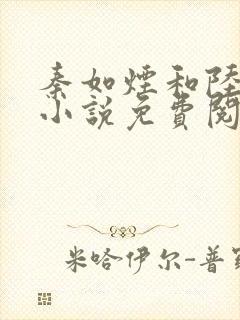 秦如煙和陸
小說免費閱
米哈伊尔-普